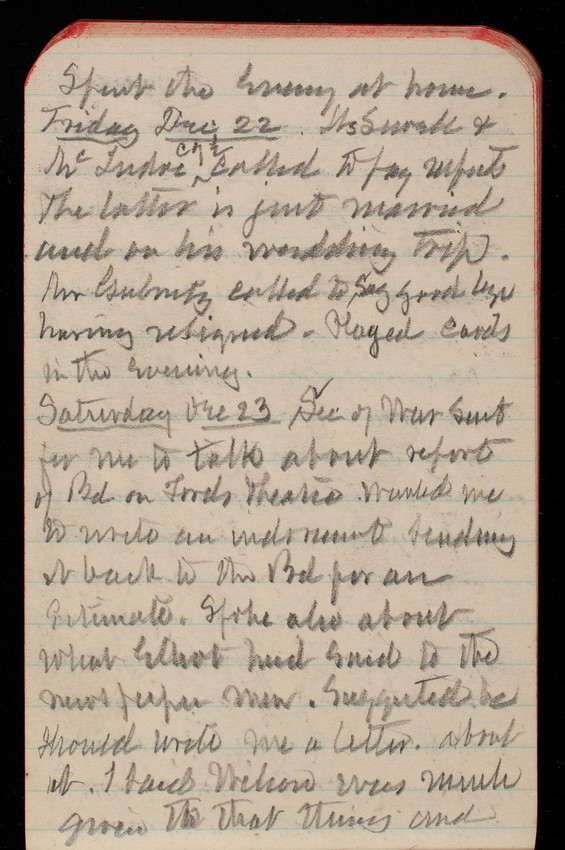 Spent the Evening at home.
Friday Dec 22. Sewell &
Mc Indoe C of E called to pay respects
The latter is just married
and on his wedding trip.
Mr called to say good bye
having resigned. Played cards
in the evening.
Saturday Dec 23 Sec of War sent
for me to talk about report
of Bd on Fords Theatre. Wanted me
to write an indorsement sending
it back to the Bd for an
Estimate. Spoke also about
what Elliot had said to the
newspaper men. Suggested he
should write me a letter. about
it. I said Wilson was much
given to that thing and